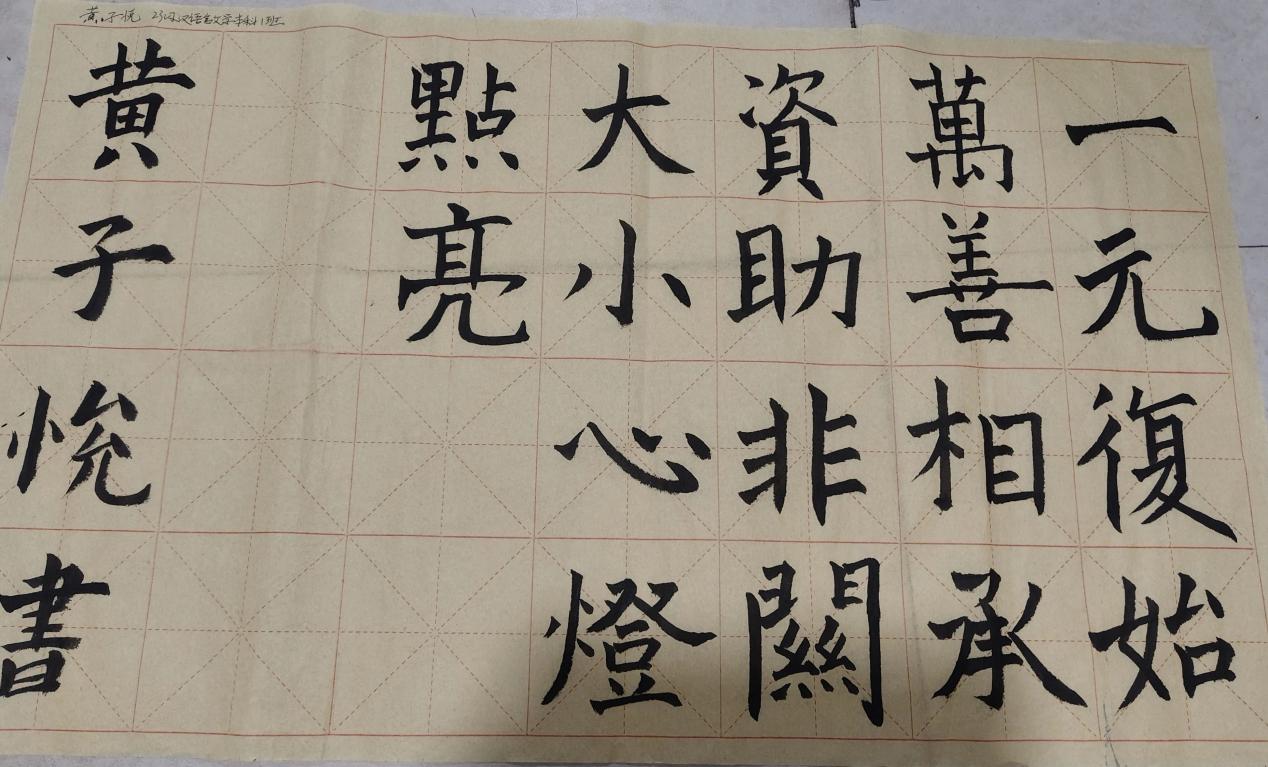 黄子悦 23级汉语言文学本科1班
一元復始
萬善相承
資助非關
大小心燈
點亮
黄子悦書